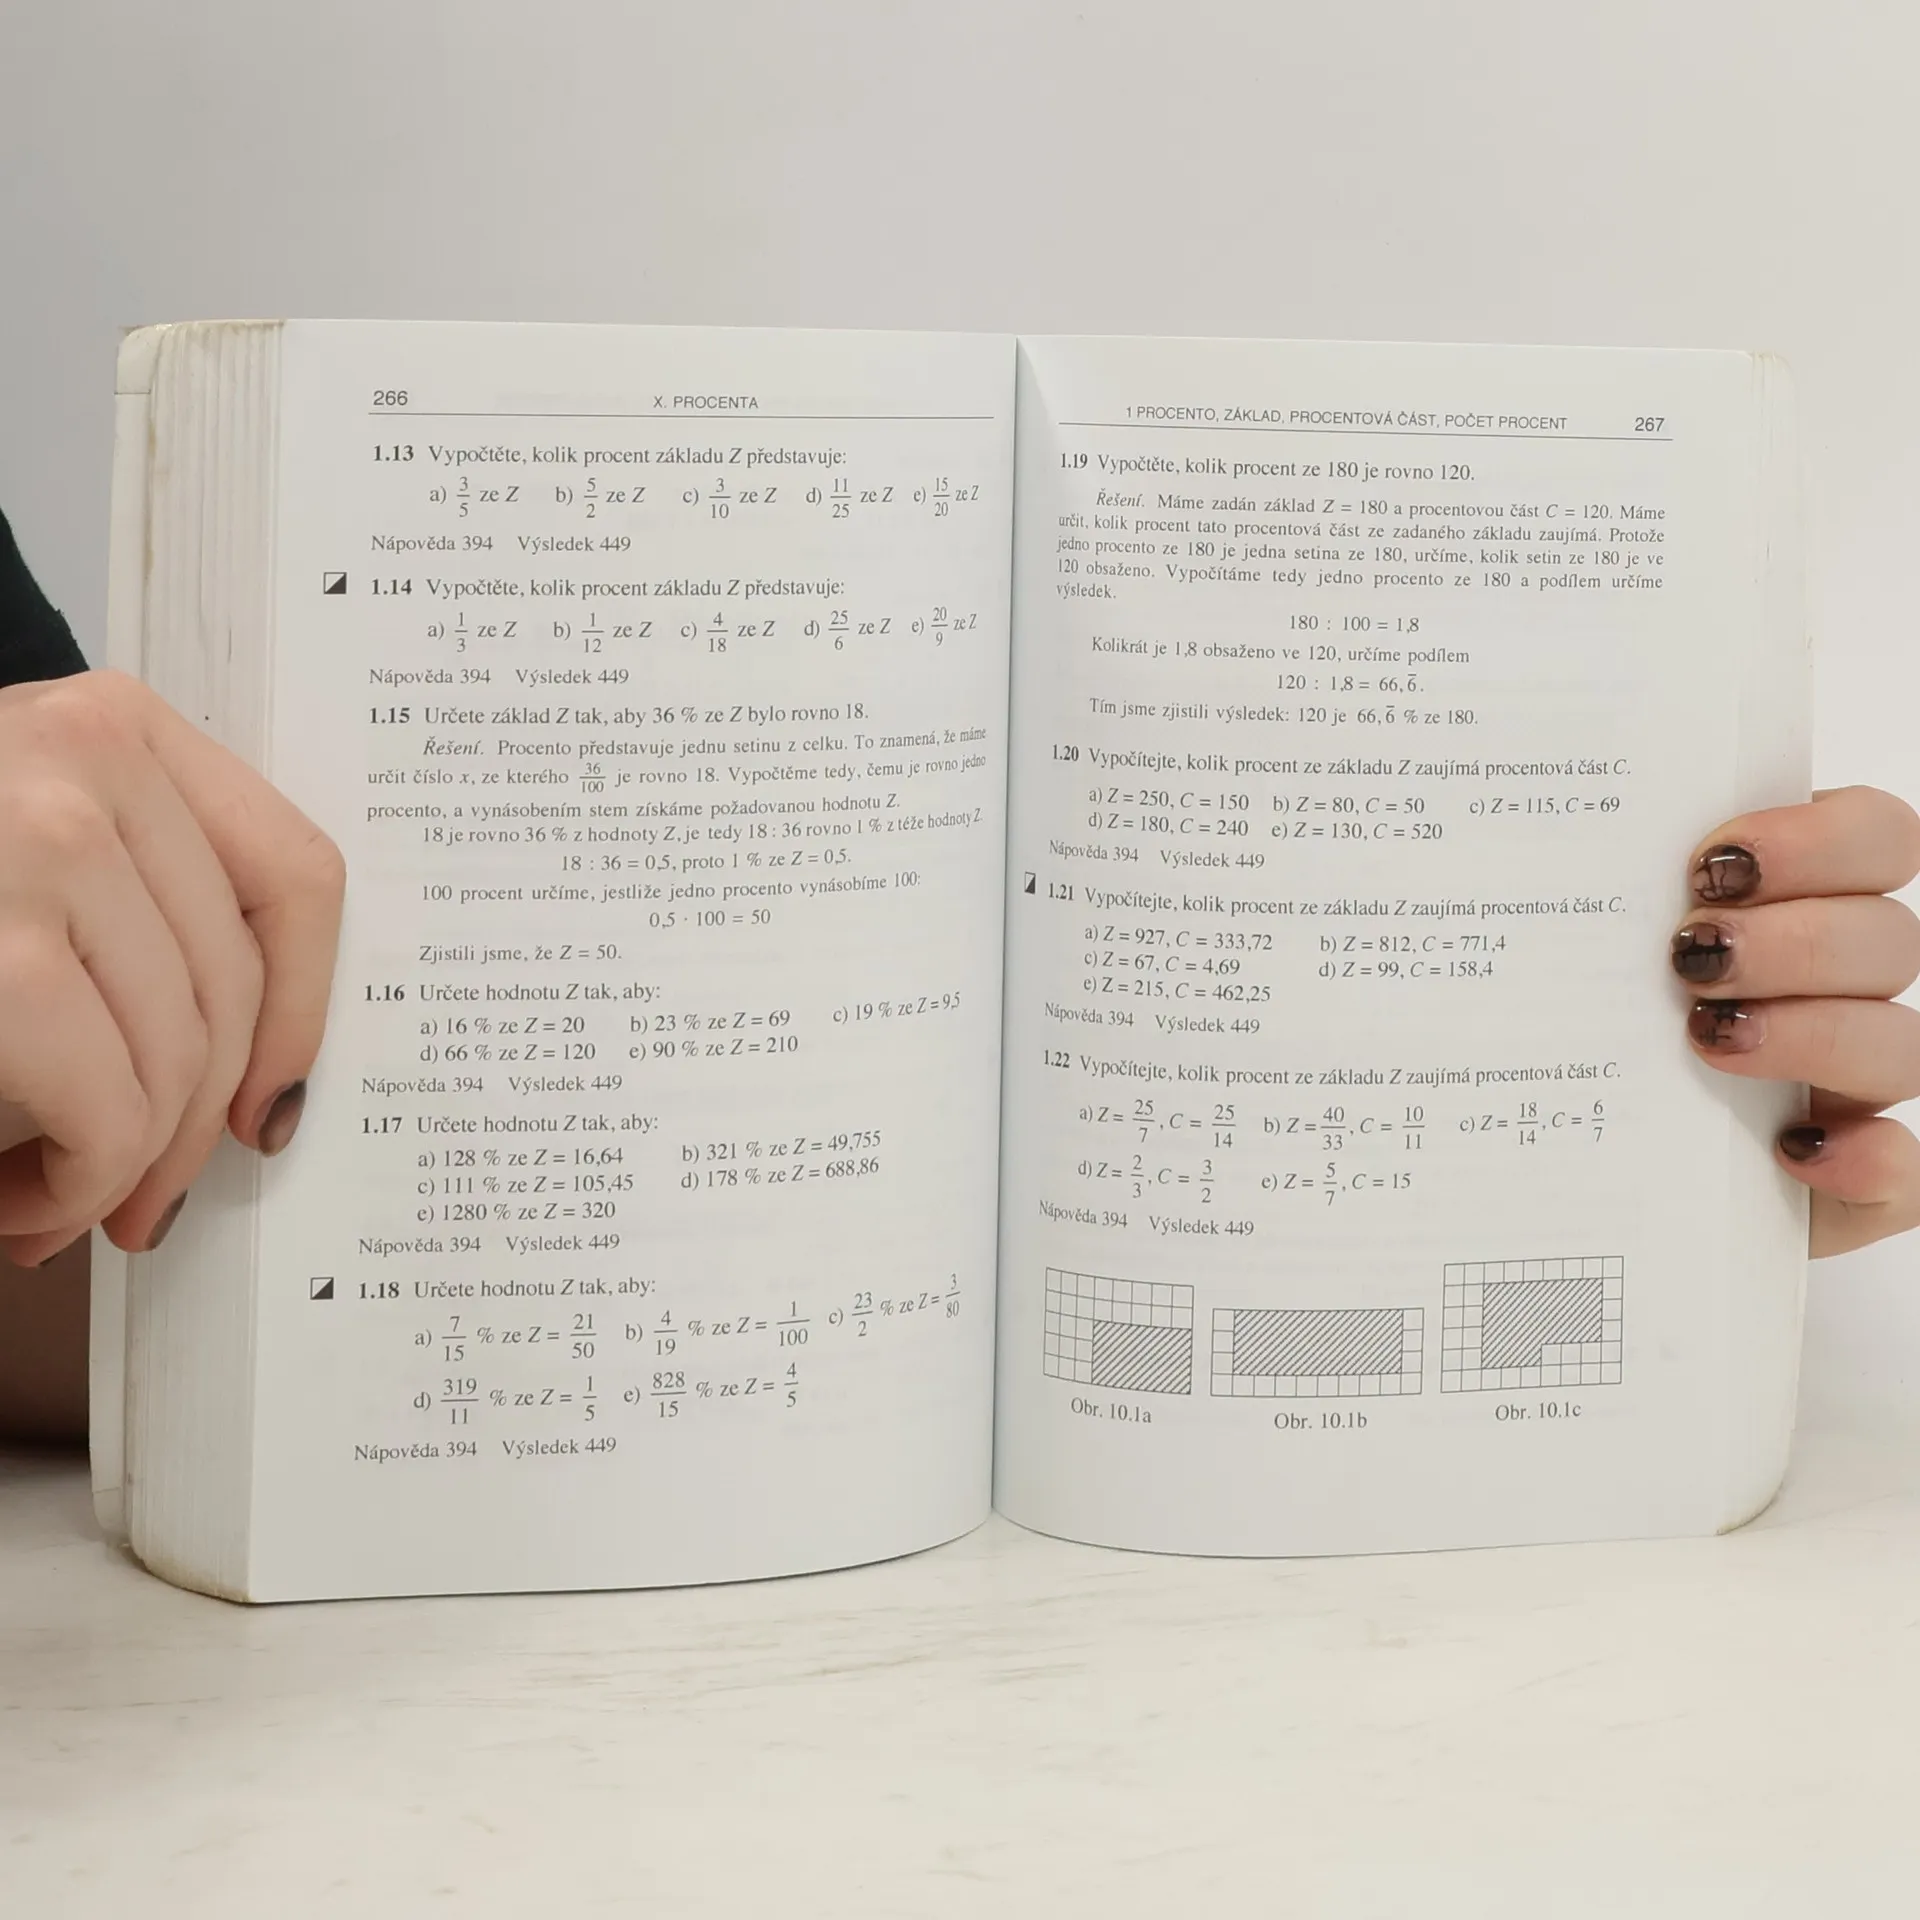 266 X. PROCENTA
1.13 Vypočtěte, kolik procent základu Z představuje:
a) 3/5 ze Z b) 5/2 ze Z c) 3/10 ze Z d) 11/25 ze Z e) 15/20 ze Z
Nápověda 394 Výsledek 449
1.14 Vypočtěte, kolik procent základu Z představuje:
a) 1/3 ze Z b) 1/12 ze Z c) 4/18 ze Z d) 25/6 ze Z e) 20/9 ze Z
Nápověda 394 Výsledek 449
1.15 Určete základ Z tak, aby 36 % ze Z bylo rovno 18.
Řešení. Procento představuje jednu setinu z celku. To znamená, že máme
určit číslo x, ze kterého 36/100 je rovno 18. Vypočtěme tedy, čemu je rovno jedno
procento, a vynásobením stem získáme požadovanou hodnotu Z.
18 je rovno 36 % z hodnoty Z, je tedy 18 : 36 rovno 1 % z téže hodnoty Z.
18 : 36 = 0,5, proto 1 % ze Z = 0,5.
100 procent určíme, jestliže jedno procento vynásobíme 100:
0,5 · 100 = 50
Zjistili jsme, že Z = 50.
1.16 Určete hodnotu Z tak, aby:
a) 16 % ze Z = 20 b) 23 % ze Z = 69 c) 19 % ze Z = 9,5
d) 66 % ze Z = 120 e) 90 % ze Z = 210
Nápověda 394 Výsledek 449
1.17 Určete hodnotu Z tak, aby:
a) 128 % ze Z = 16,64 b) 321 % ze Z = 49,755
c) 111 % ze Z = 105,45 d) 178 % ze Z = 688,86
e) 1280 % ze Z = 320
Nápověda 394 Výsledek 449
1.18 Určete hodnotu Z tak, aby:
a) 7/15 % ze Z = 21/50 b) 4/19 % ze Z = 1/100 c) 23/2 % ze Z = 3/80
d) 319/11 % ze Z = 1/5 e) 828/15 % ze Z = 4/5
Nápověda 394 Výsledek 449
1 PROCENTO, ZÁKLAD, PROCENTOVÁ ČÁST, POČET PROCENT 267
1.19 Vypočtěte, kolik procent ze 180 je rovno 120.
Řešení. Máme zadán základ Z = 180 a procentovou část C = 120. Máme
určit, kolik procent tato procentová část ze zadaného základu zaujímá. Protože
jedno procento ze 180 je jedna setina ze 180, určíme, kolik setin ze 180 je ve
120 obsaženo. Vypočítáme tedy jedno procento ze 180 a podílem určíme
výsledek.
180 : 100 = 1,8
Kolikrát je 1,8 obsaženo ve 120, určíme podílem
120 : 1,8 = 66,6̄.
Tím jsme zjistili výsledek: 120 je 66,6̄ % ze 180.
1.20 Vypočítejte, kolik procent ze základu Z zaujímá procentová část C.
a) Z = 250, C = 150 b) Z = 80, C = 50 c) Z = 115, C = 69
d) Z = 180, C = 240 e) Z = 130, C = 520
Nápověda 394 Výsledek 449
1.21 Vypočítejte, kolik procent ze základu Z zaujímá procentová část C.
a) Z = 927, C = 333,72 b) Z = 812, C = 771,4
c) Z = 67, C = 4,69 d) Z = 99, C = 158,4
e) Z = 215, C = 462,25
Nápověda 394 Výsledek 449
1.22 Vypočítejte, kolik procent ze základu Z zaujímá procentová část C.
a) Z = 25/7, C = 25/14 b) Z = 40/33, C = 10/11 c) Z = 18/14, C = 6/7
d) Z = 2/3, C = 3/2 e) Z = 5/7, C = 15
Nápověda 394 Výsledek 449
Obr. 10.1a Obr. 10.1b Obr. 10.1c